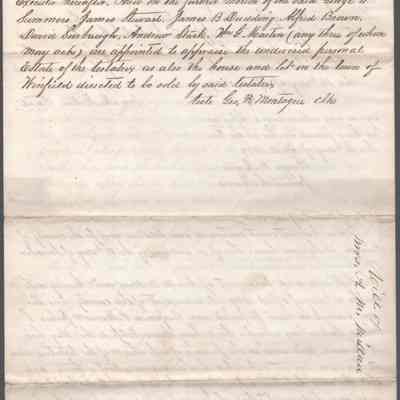 And on the further motion of the said George W
Summers James Stewart, James B Dudding Alfred Brown,
David Limbrugh, Andrew Stuk, Wm E. Winston (any three of whom
may act,) are appointed to appraise the undevised personal
Estate of the testatrix, as also the house and lot in the town of
Winfield directed to be sold by said testatrix
Teste Geo, W Montague Clk
Will of
Mrs, A. M.